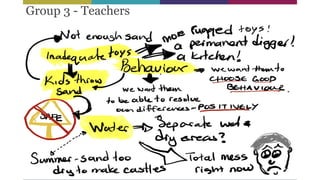 Group 3 - Teachers
Not enough sand
more puffed toys!
a permanent digger!
a kitchen!
Inadequate toys
Behaviour
we want them to
CHOOSE GOOD
BEHAVIOUR.
Kids throw
sand
we want them
to be able to resolve
own differences - POSITIVELY
SAFE
Water
Separate wet &
dry areas?
Summer - sand too
dry to make castles
Total mess
right now